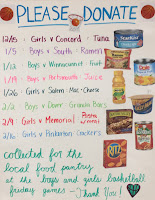 PLEASE DONATE
12/15 Girls v Concord - Tuna
1/5 Boys v South - Ramen
1/12 Boys v Winnacunnet - Fruit
1/19 Boys v Portsmouth - Juice
1/26 Girls v Salem - Mac + Cheese
2/2 Boys v Dover - Granola Bars
2/9 Girls v Memorial - Pasta
2/16 Girls v Pinkerton - Crackers
RITZ
collected for the
local food pantry
at the boys and girls basketball
friday games - Thank You!